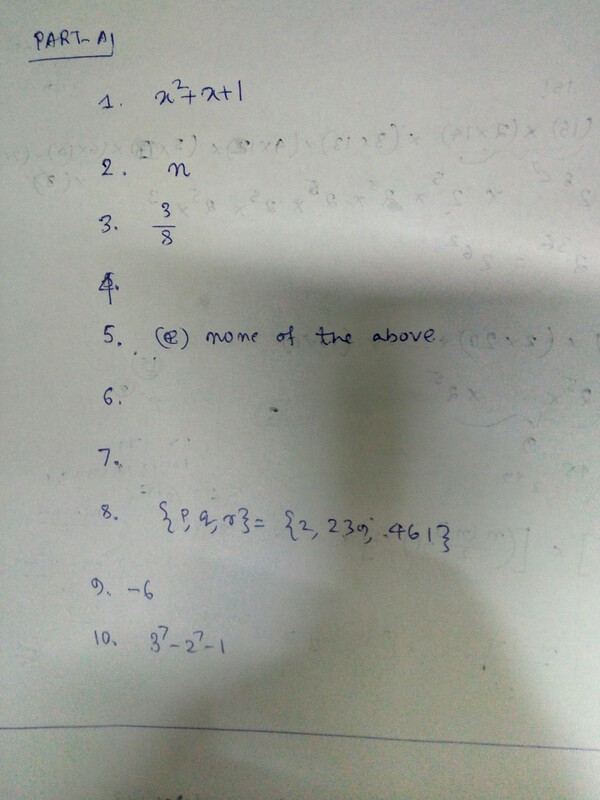 PART-A
1. x²+x+1
2. n
3. 3/8
4.
5. (e) none of the above
6.
7.
8. {p, q, r} = {2, 239, 461}
9. -6
10. 3⁷-2⁷-1